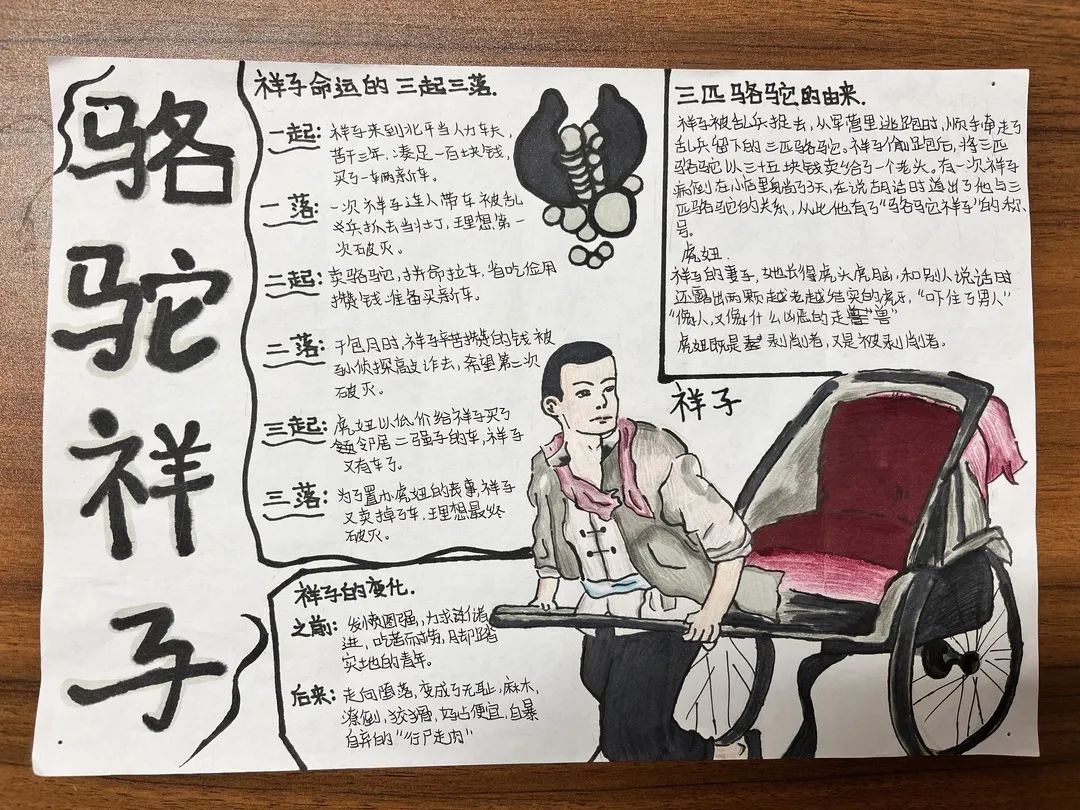 骆
驼
祥
子
祥子命运的三起三落.
一起: 祥子来到北平当人力车夫,
苦干三年,凑足一百块钱,
买了一辆新车。
一落: 一次祥子连人带车被乱
兵抓去当壮丁,理想第一
次破灭。
二起: 卖骆驼,拼命拉车,省吃俭用
攒钱准备买新车。
二落: 干包月时,祥子辛苦攒的钱被
孙侦探敲诈去,希望第二次
破灭。
三起: 虎妞以低价给祥子买了
邻居二强子的车,祥子
又有车了。
三落: 为了置办虎妞的丧事,祥子
又卖掉了车,理想最终
破灭。
三匹骆驼的由来.
祥子被乱兵抓去,从军营里逃跑时,顺手牵走了
乱兵留下的三匹骆驼。祥子偷跑后,将三匹
骆驼以三十五块钱卖给了一个老头。有一次祥子
病倒在小店里躺了3天,在说胡话时道出了他与三
匹骆驼的关系,从此他有了“骆驼祥子”的称
号。
虎妞.
祥子的妻子,她长得虎头虎脑,和别人说话时
还露出两颗越老越结实的虎牙,“吓住了男人”
“像人,又像什么凶恶的走兽”
虎妞既是剥削者,又是被剥削者。
祥子
祥子的变化.
之前: 发愤图强,力求谋储
进,吃苦耐劳,脚踏
实地的青年。
后来: 走向堕落,变成了无耻,麻木,
潦倒,狡猾,好占便宜,自暴
自弃的“行尸走肉”